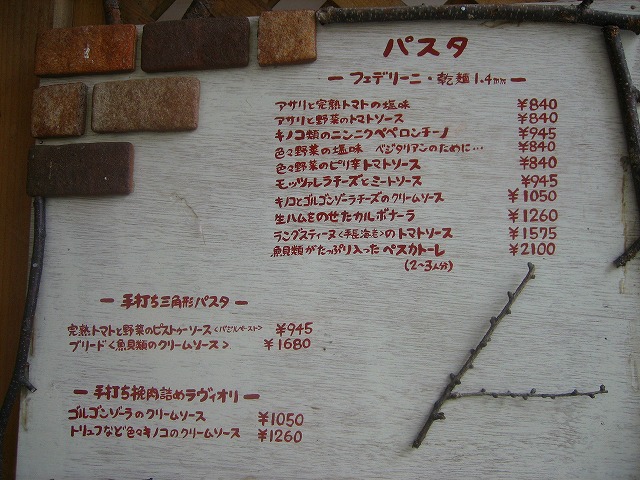 パスタ
ー フェデリーニ・乾麺1.4mm ー
アサリと完熟トマトの塩味 ¥840
アサリと野菜のトマトソース ¥840
キノコ類のニンニクペペロンチーノ ¥945
色々野菜の塩味 ベジタリアンのために… ¥840
色々野菜のピリ辛トマトソース ¥840
モッツァレラチーズとミートソース ¥945
キノコとゴルゴンゾーラチーズのクリームソース ¥1050
生ハムをのせたカルボナーラ ¥1260
ラングスティーヌ<手長海老>のトマトソース ¥1575
魚貝類がたっぷり入ったペスカトーレ ¥2100
(2~3人分)
ー 手打ち三角形パスタ ー
完熟トマトと野菜のピストゥーソース<バジルペースト> ¥945
ブリード<魚貝類のクリームソース> ¥1680
ー 手打ち挽肉詰めラヴィオリ ー
ゴルゴンゾーラのクリームソース ¥1050
トリュフなど色々キノコのクリームソース ¥1260